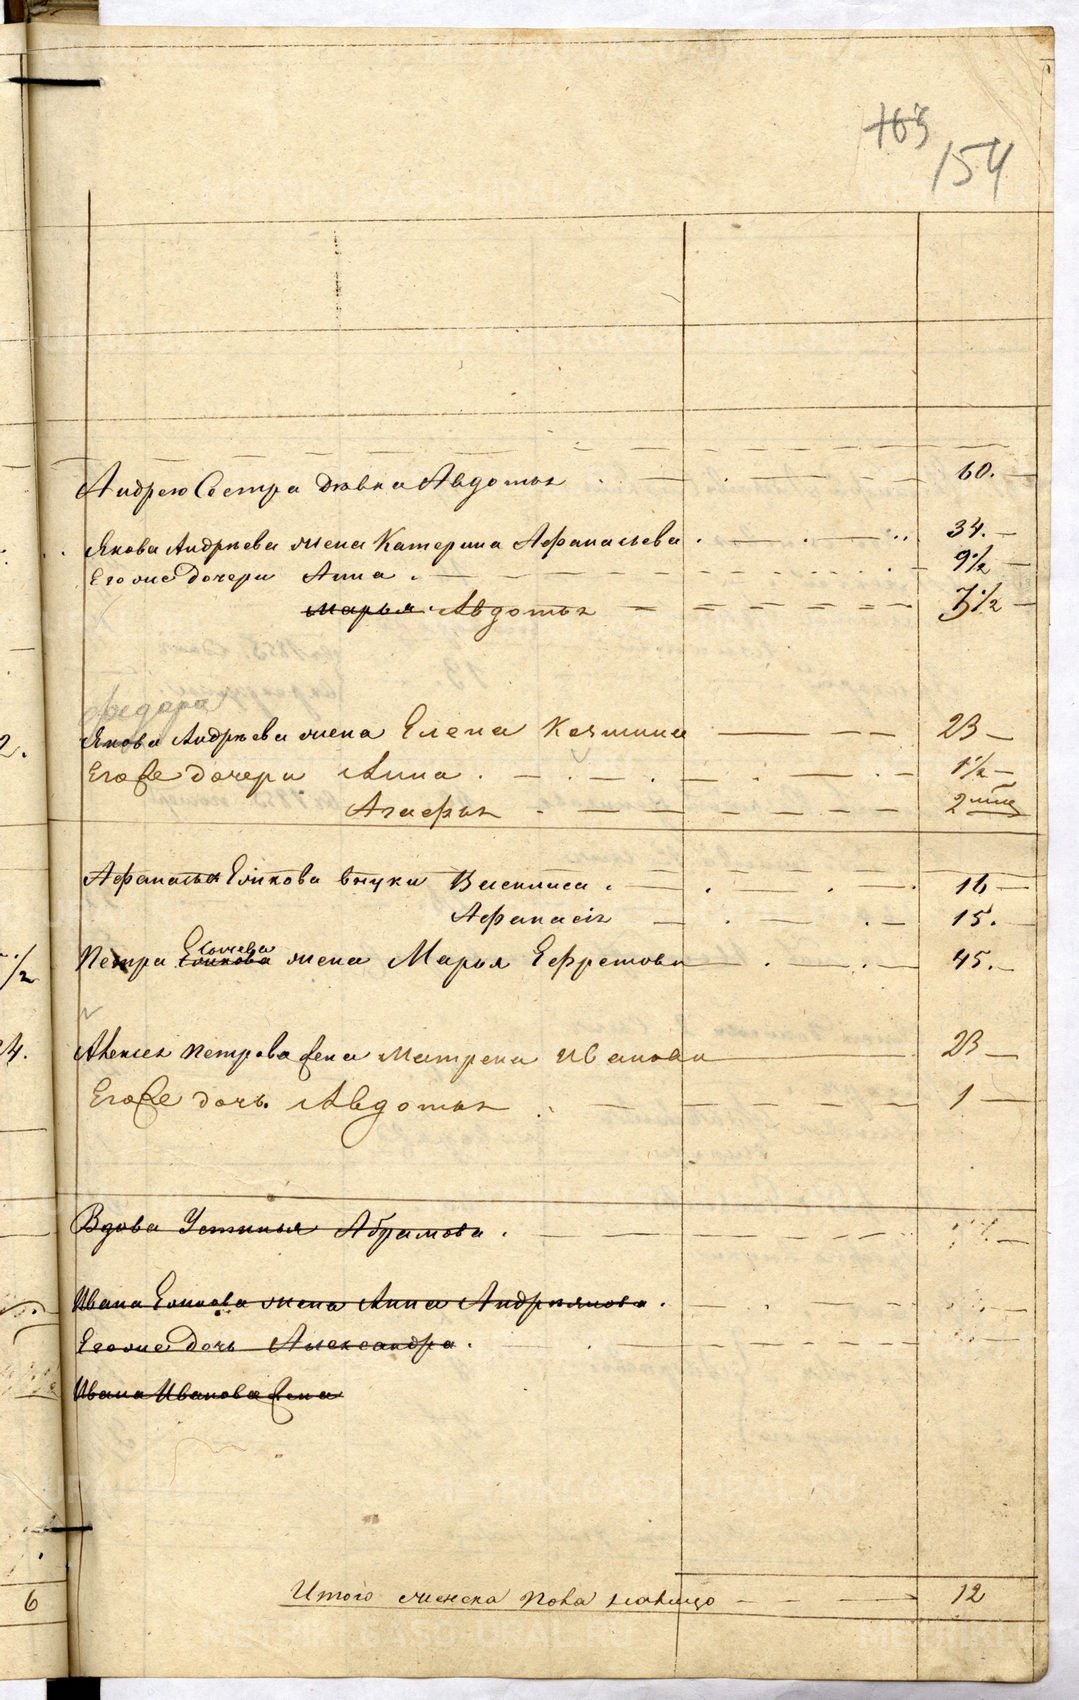 163
154
Андрею Сестра девка Авдотья 60.
Якова Андреева жена Катерина Афанасьева 34.
Егоже дочери Анна 9 1/2
Марья Авдотья 7 1/2
Федора
Якова Андреева жена Елена Козмина 23
Егоже дочери Анна 1 1/2
Агафья 2
Афанасья внуки Василиса 16
Афанасія 15.
Петра жена Марья Ефремова 45.
Алексея Петрова жена Матрена Иванова 23
Егоже дочь Авдотья 1
Вдова Устинья Абрамова
Ивана жена Анна Андреянова
Егоже дочь Александра
Ивана Иванова жена
2.
/2
4.
6
Итого женска пола налицо 12